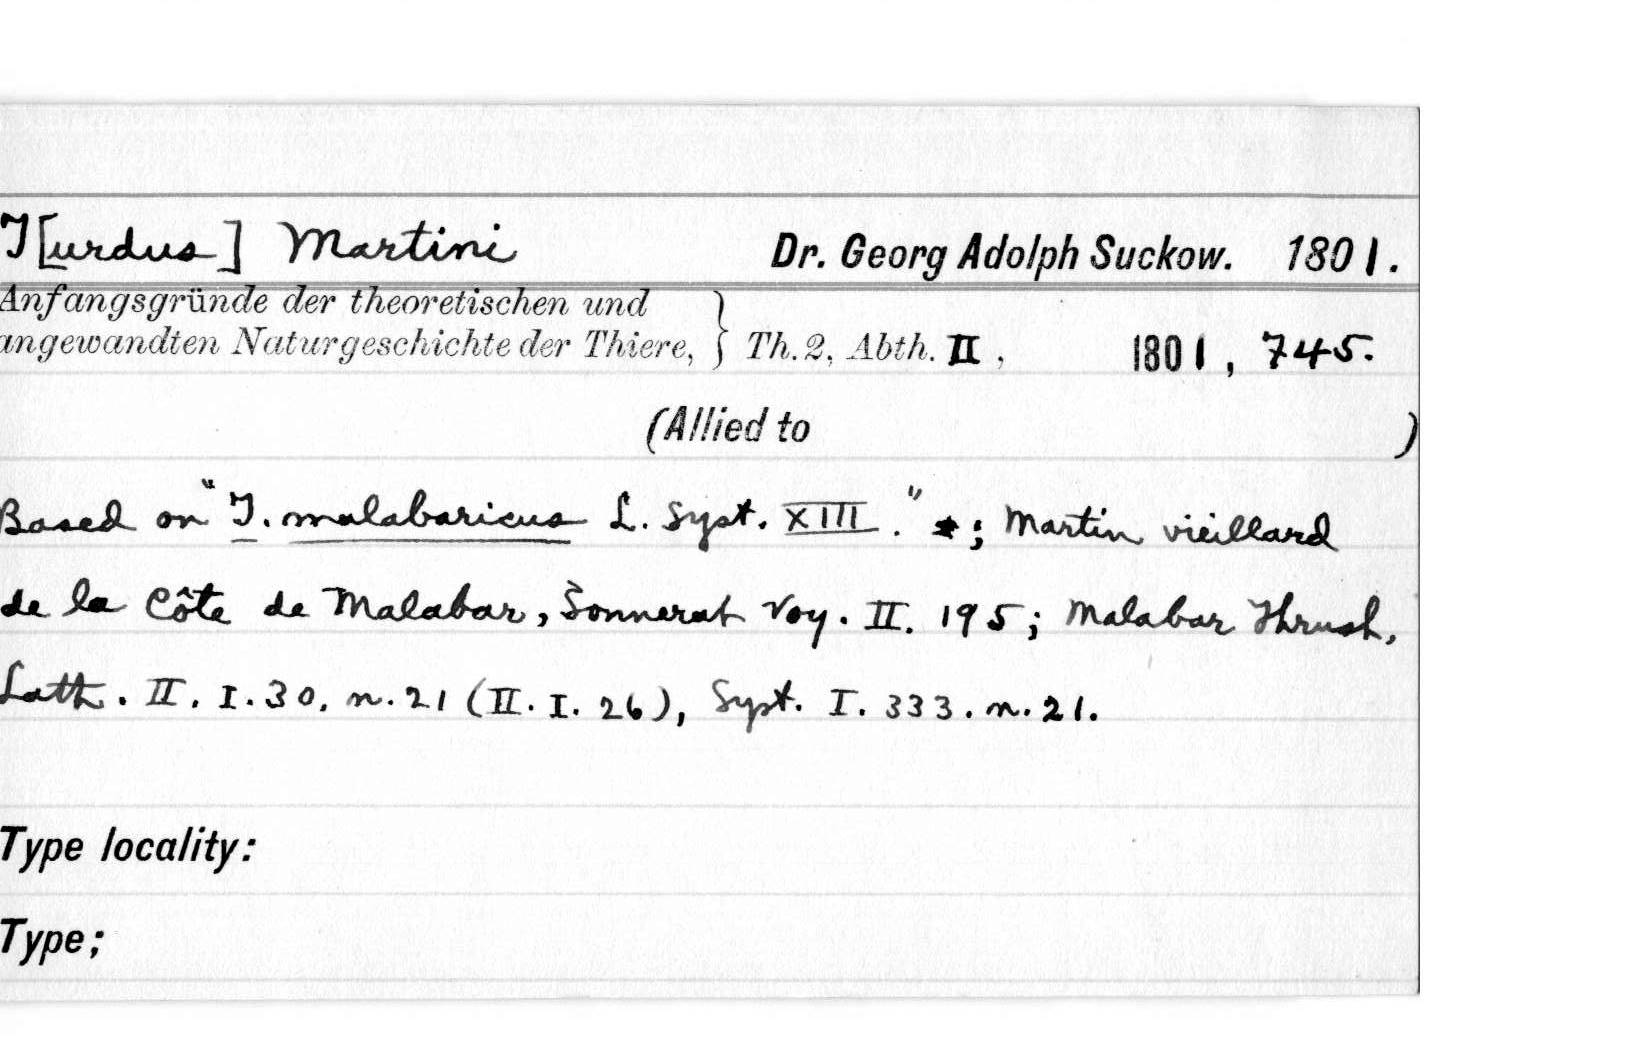 T[urdus] Martini Dr. Georg Adolph Suckow. 1801.
Anfangsgründe der theoretischen und
angewandten Naturgeschichte der Thiere, } Th. 2, Abth. II, 1801, 745.
(Allied to )
Based on "T. malabaricus L. Syst. XIII." *; Martin vieillard
de la Côte de Malabar, Sonnerat Voy. II. 195; Malabar Thrush,
Lath. II. I. 30. n. 21 (II. I. 26), Syst. I. 333. n. 21.
Type locality:
Type;